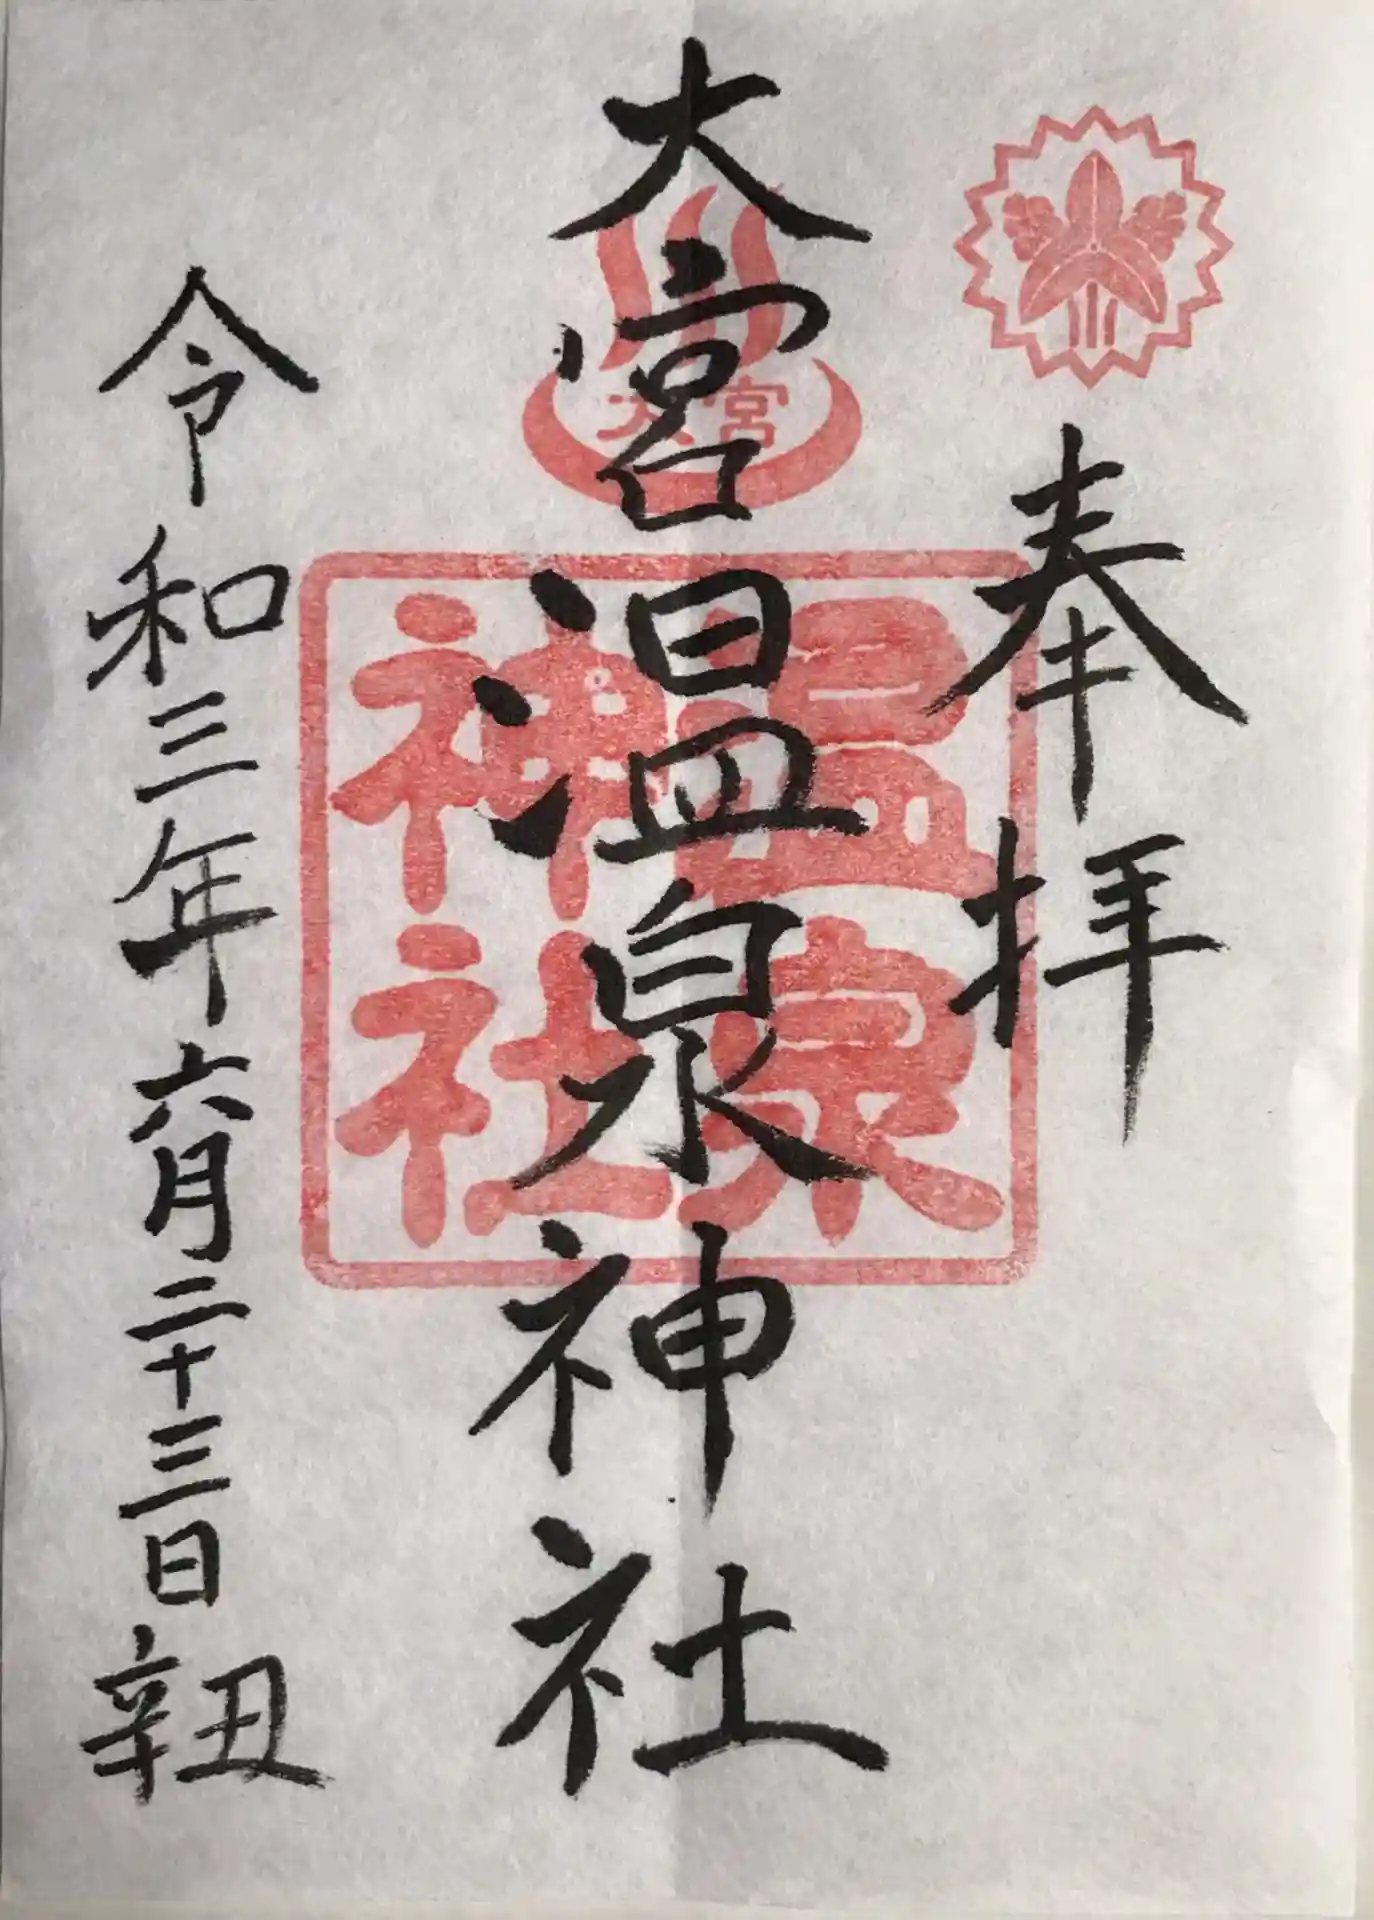 奉拝
大宮温泉神社
令和三年六月二十三日 辛丑
大宮
温泉
神社